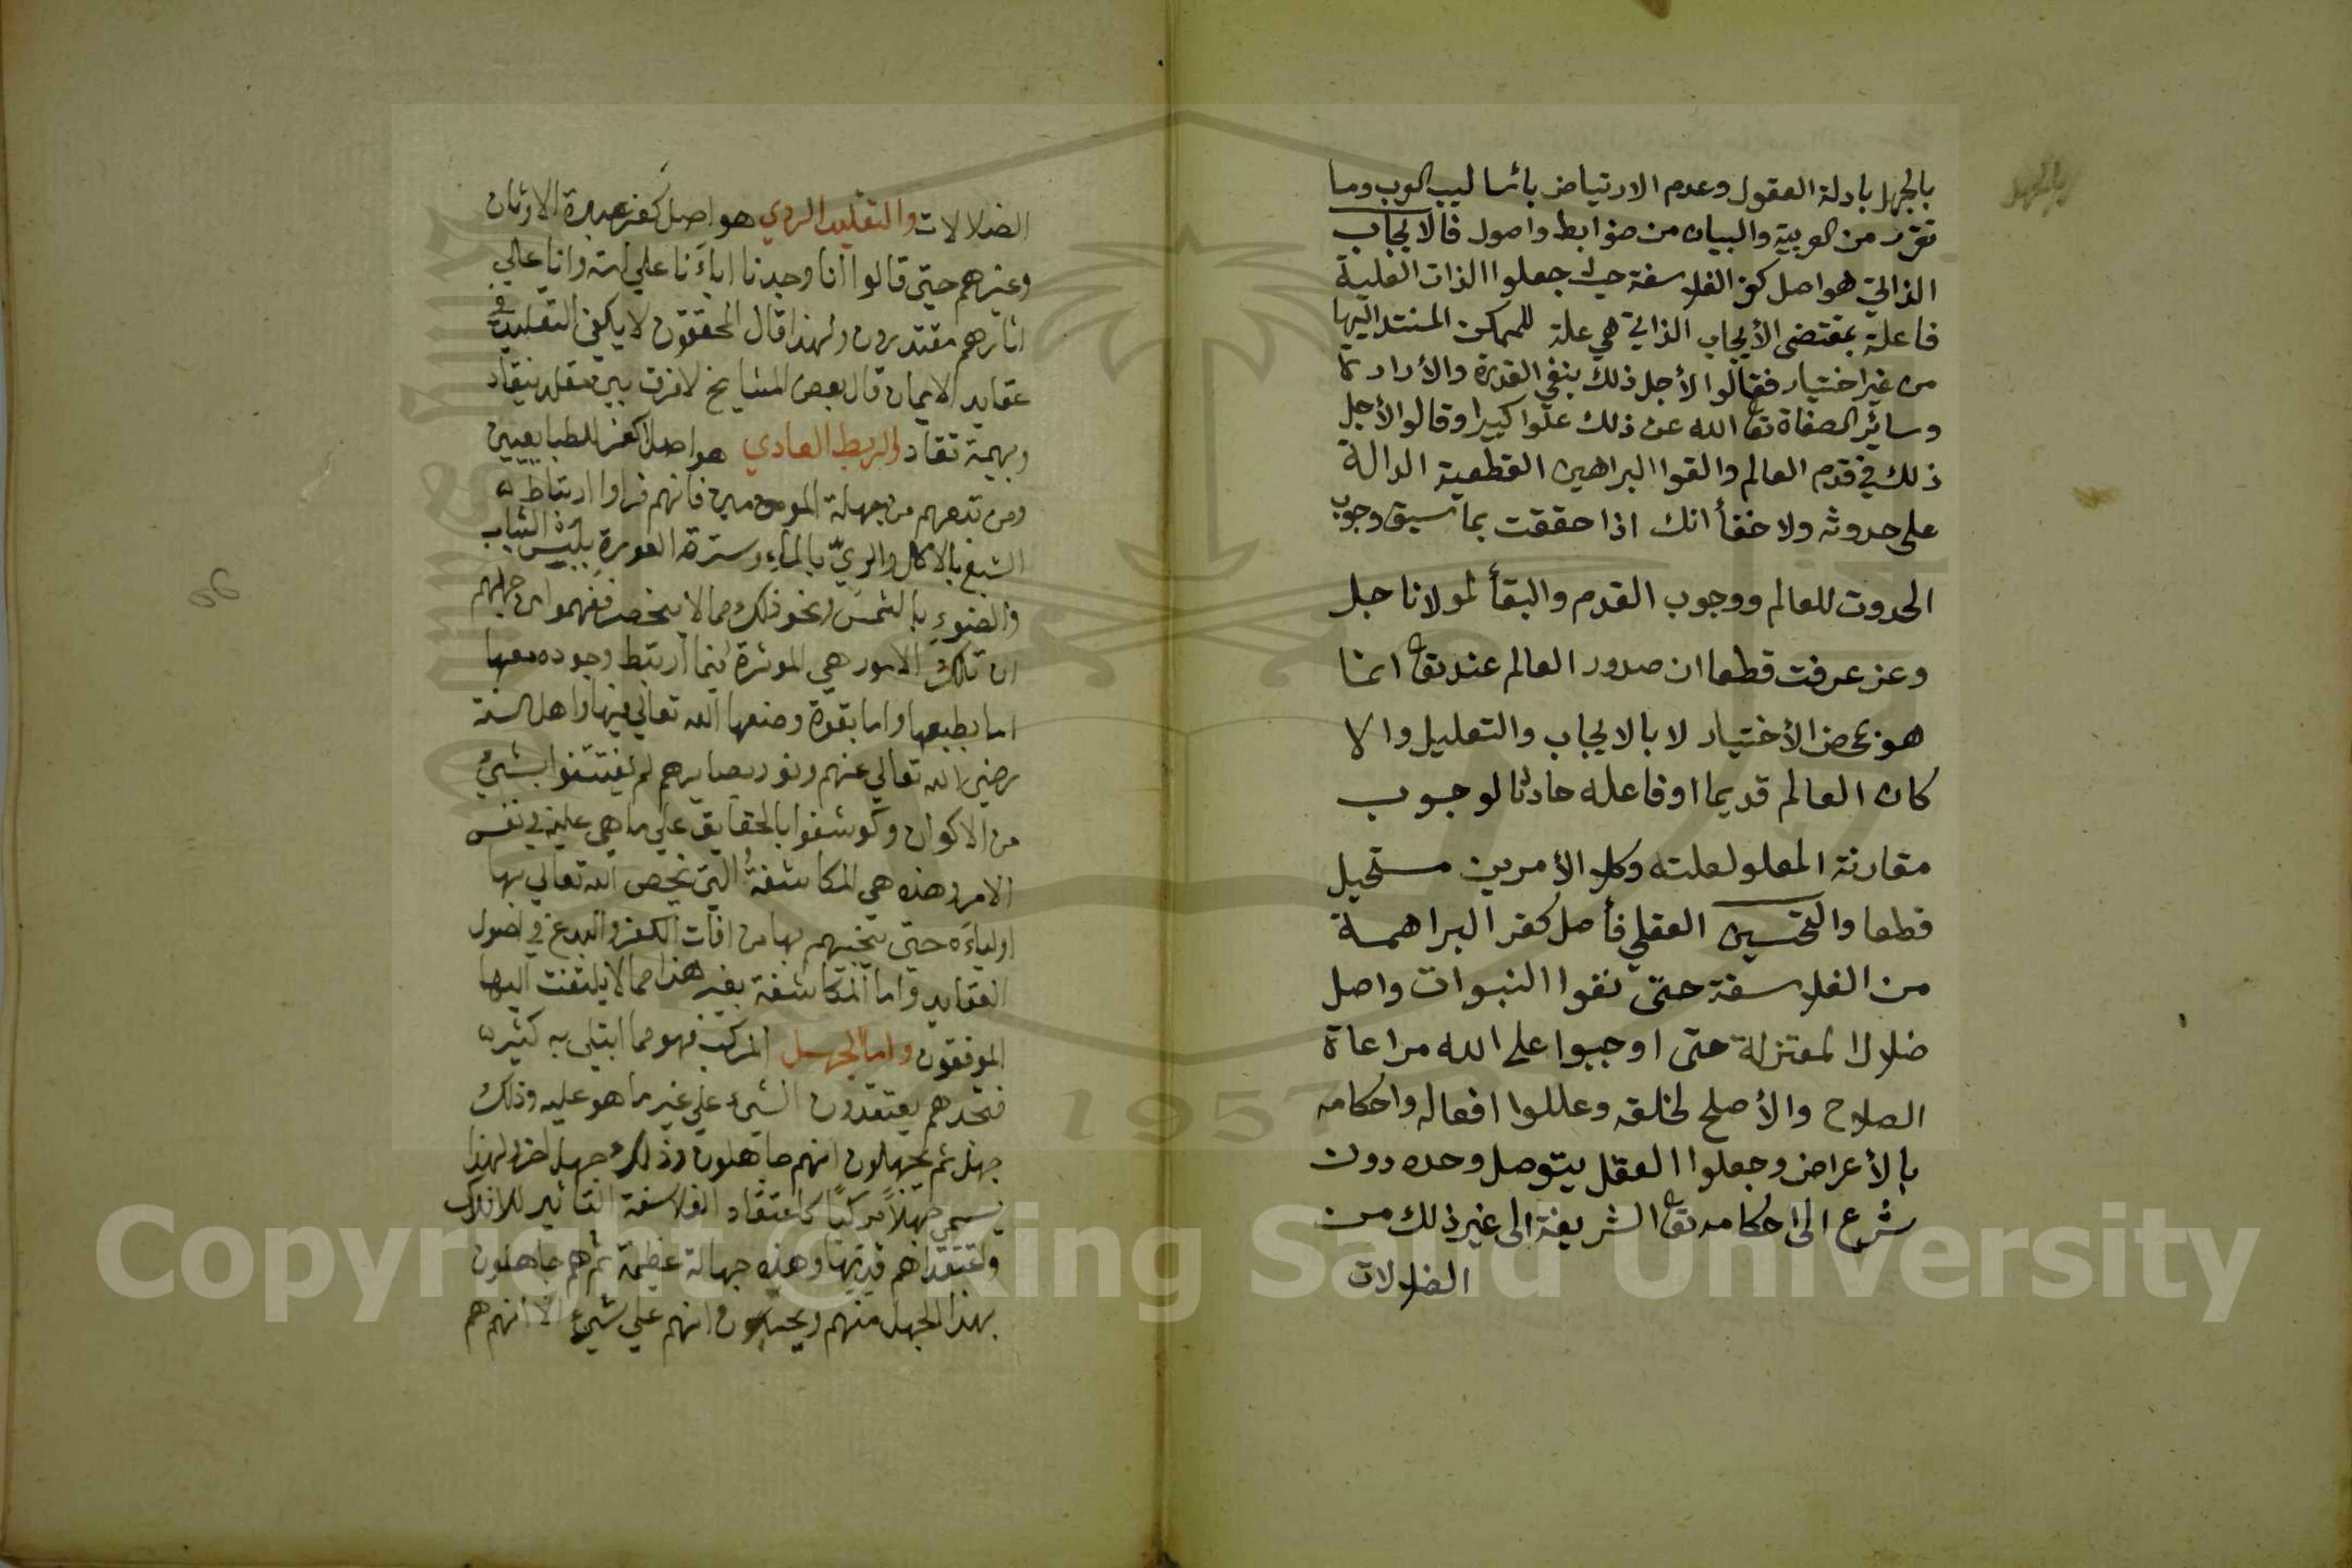 بالجهل بادلة العقول وعدم الارتياض باساليب العرب وما
تقرر من العربية والبيان من ضوابط واصول فالايجاب
الذاتي هو اصل كفر الفلاسفة حيث جعلوا الذات العلية
فاعلة بمقتضى الأيجاب الذاتي هي علة للممكن المستند اليها
من غير اختيار فقالوا لأجل ذلك بنفي القدرة والأرادة
وسائر الصفاة تعا الله عن ذلك علوا كبيرا وقالوا لأجل
ذلك في قدم العالم والقوا البراهين القطعية الدالة
على حدوثه ولا خفأ انك اذا حققت بما سبق وجوب
الحدوث للعالم ووجوب القدم والبقأ لمولانا جل
وعز عرفت قطعا ان صدور العالم عنه تعا انما
هو بمحض الأختيار لا بالايجاب والتعليل والا
كان العالم قديما او فاعله حادثا لوجوب
مقارنة المعلول علته وكلا الأمرين مستحيل
قطعا والتحسين العقلي فأصل كفر البراهمة
من الفلاسفة حتى نفوا النبوات واصل
ضلال المعتزلة حتى اوجبوا على الله مراعاة
الصلاح والأصلح لخلقه وعللوا افعاله واحكامه
بالأعراض وجعلوا العقل يتوصل وحده دون
شرع الى احكامه تعا الشريفة الى غير ذلك من
الضلالات
بالجهل
الضلالات والتقليد الردي هو اصل كفر عبدة الاوثان
وغيرهم حتى قالوا انا وجدنا اباءنا علي امة وانا علي
اثارهم مقتدرون ولهذا قال المحققون لا يكفي التقليد في
عقايد الايمان قال بعض المشايخ لا فرق بين مقلد ينقاد
وبهيمة تقاد والربط العادي هو اصل كفر الطبايعيين
ومن تبعهم من جهلة المومنين فانهم قراوا ارتباط
الشبع بالاكل والري بالماء وسترة العورة بلبس الثياب
والضوء بالشمس ونحو ذلك مما لا ينحصر ففهموا من جهلهم
ان تلك الامور هي الموثرة فيما ارتبط وجوده معها
اما بطبعها واما بقوة وضعها الله تعالي فيها واهل السنة
رضي الله تعالي عنهم ونور بصايرهم لم يفتتنوا بشيء
من الاكوان وكوشفوا بالحقايق علي ما هي عليه في نفس
الامر وهذه هي المكاشفة التي يخص الله تعالي بها
اولياءه حتي ينجيهم بها من افات الكفر والبدع في اصول
العقايد واما المكاشفة بغير هذا مما لا يلتفت اليها
الموفقون واما الجهل المركب فهو مما ابتلي به كثير
فتجدهم يعتقدون الشيء علي غير ما هو عليه وذلك
جهل ثم يجهلون انهم جاهلون وذلك جهل اخر ولهذا
يسمي جهلاً مركباً كاعتقاد الفلاسفة التاثير للافلاك
واعتقادهم قدمها وهذه جهالة عظيمة ثم هم جاهلون
بهذا الجهل منهم ويحسبون انهم علي شيء الا انهم هم
Copyright © King Saud University
1957